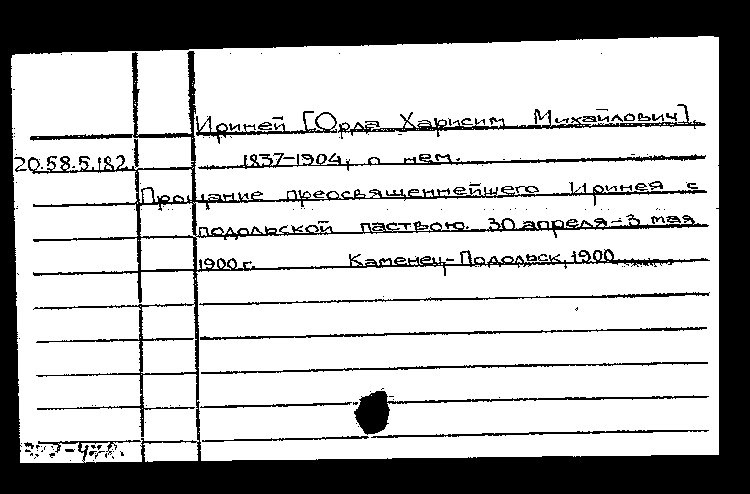 Ириней [Орда Харисим Михайлович],
20.58.5.182. 1837-1904, о нем.
Прощание преосвященнейшего Иринея с
подольской паствою. 30 апреля-3 мая
1900 г. Каменец-Подольск, 1900